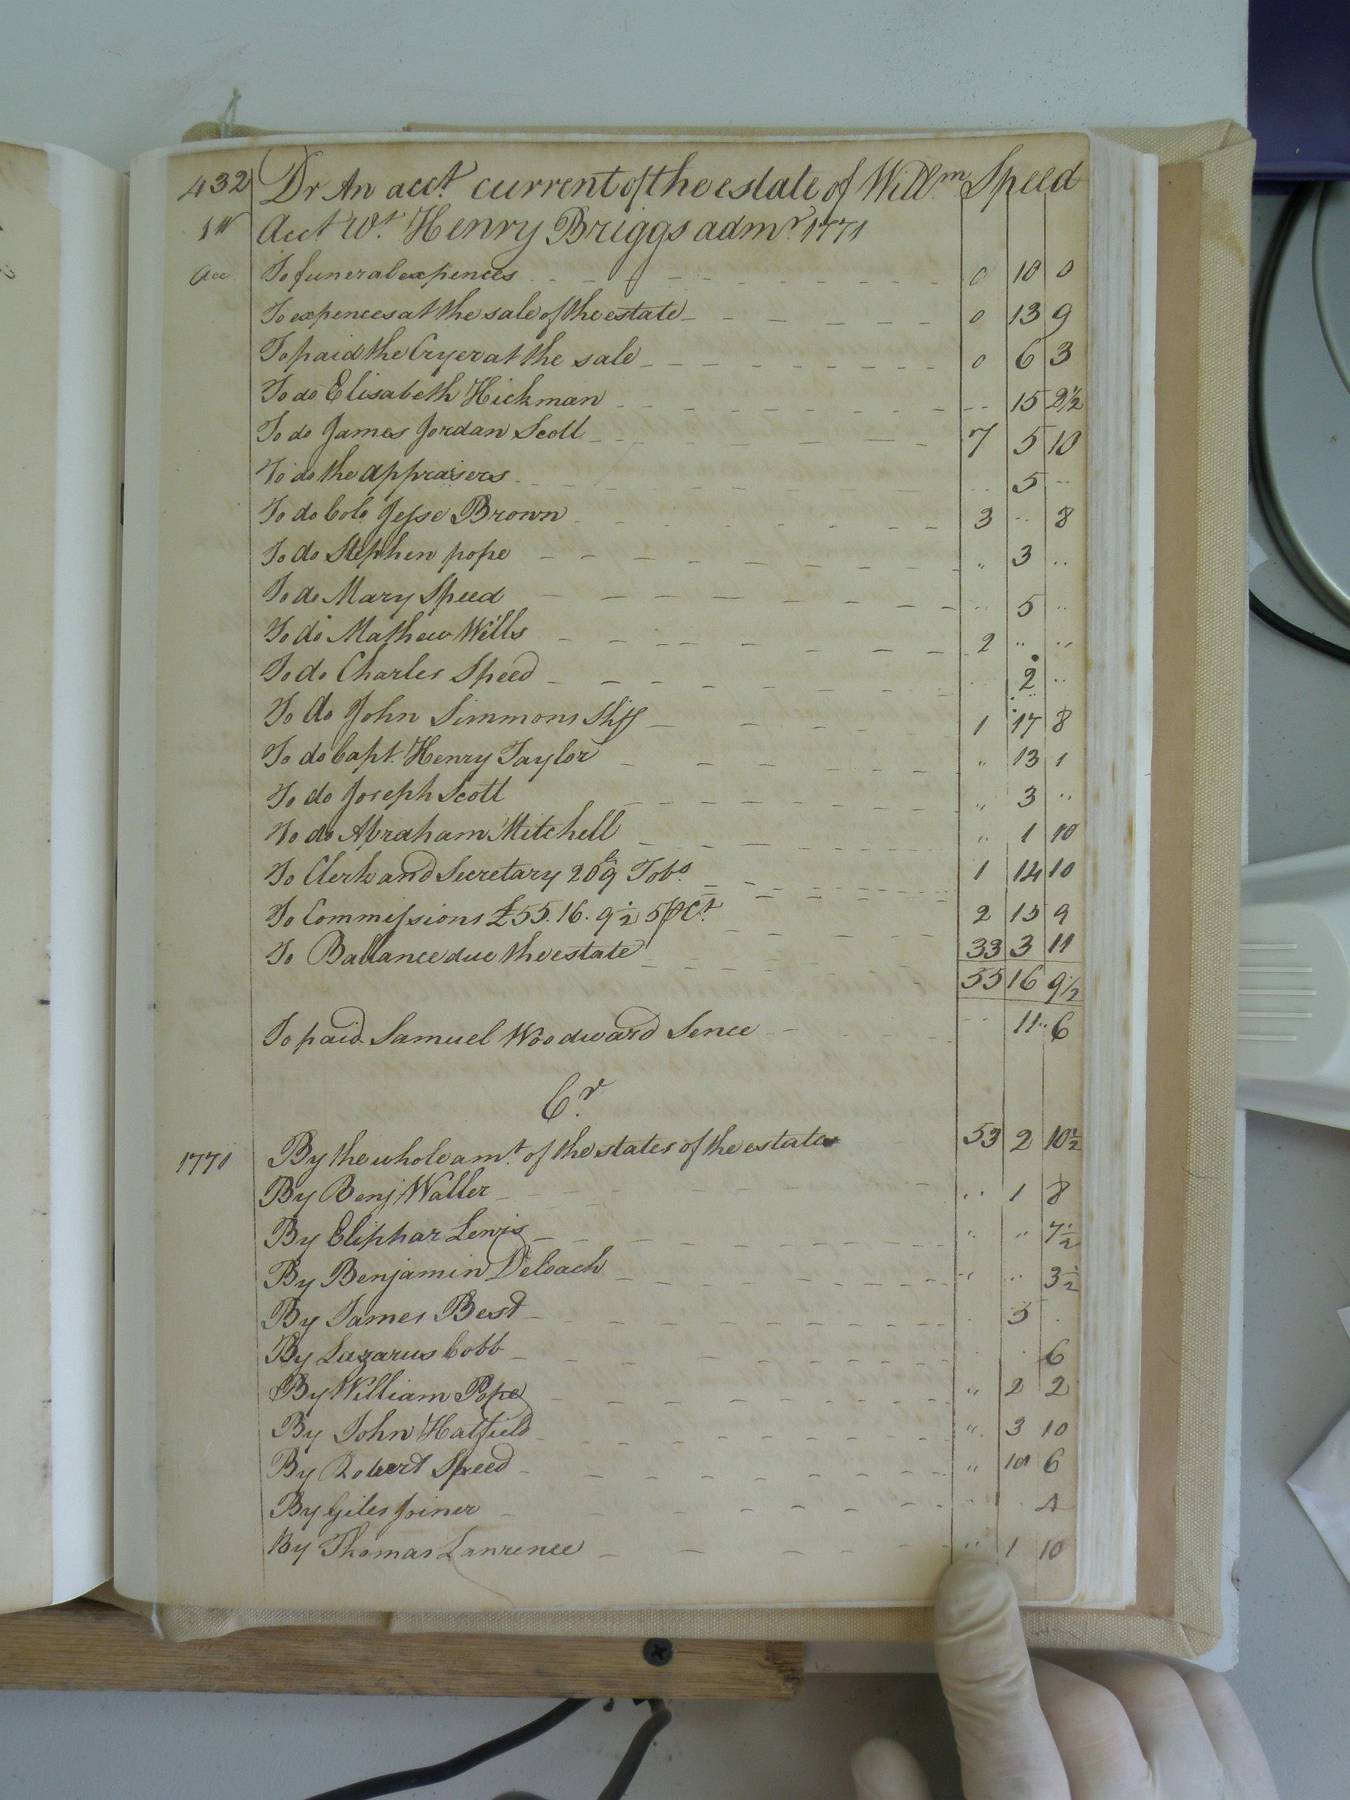 432 Dr An acct. current of the estate of Willm Speed
1st Acct Wt. Henry Briggs admr. 1771
Acc To funeral expences 0 10 0
To expences at the sale of the estate 0 13 9
To paid the Cryer at the sale 0 6 3
To do Elisabeth Hickman 15 2½
To do James Jordan Scott 7 5 10
To do the appraisers 5
To do Colo Jesse Brown 3 .. 8
To do Stephen pope " 3 ..
To do Mary Speed .. 5 ..
To do Mathew Wills 2 .. ..
To do Charles Speed 2 ..
To do John Simmons Shff 1 17 8
To do Capt. Henry Taylor " 13 1
To do Joseph Scott " 3 ..
To do Abraham Mitchell " 1 10
To Clerk and Secretary 209 Tobo. 1 14 10
To Commissions £55.16.9½ 5 P Ct. 2 15 9
To Ballance due the estate 33 3 11
55 16 9½
To paid Samuel Woodward Sence 11 .. 6
Cr.
1771 By the whole amt. of the states of the estate 53 2 10½
By Benj Waller .. 1 8
By Eliphar Lewis " " 7½
By Benjamin Deloach " .. 3½
By James Best 5
By Lazarus Cobb 6
By William Pope " 2 2
By John Hatfield " 3 10
By Robert Speed " 10 6
By Giles Joiner 4
By Thomas Lawrence " 1 10